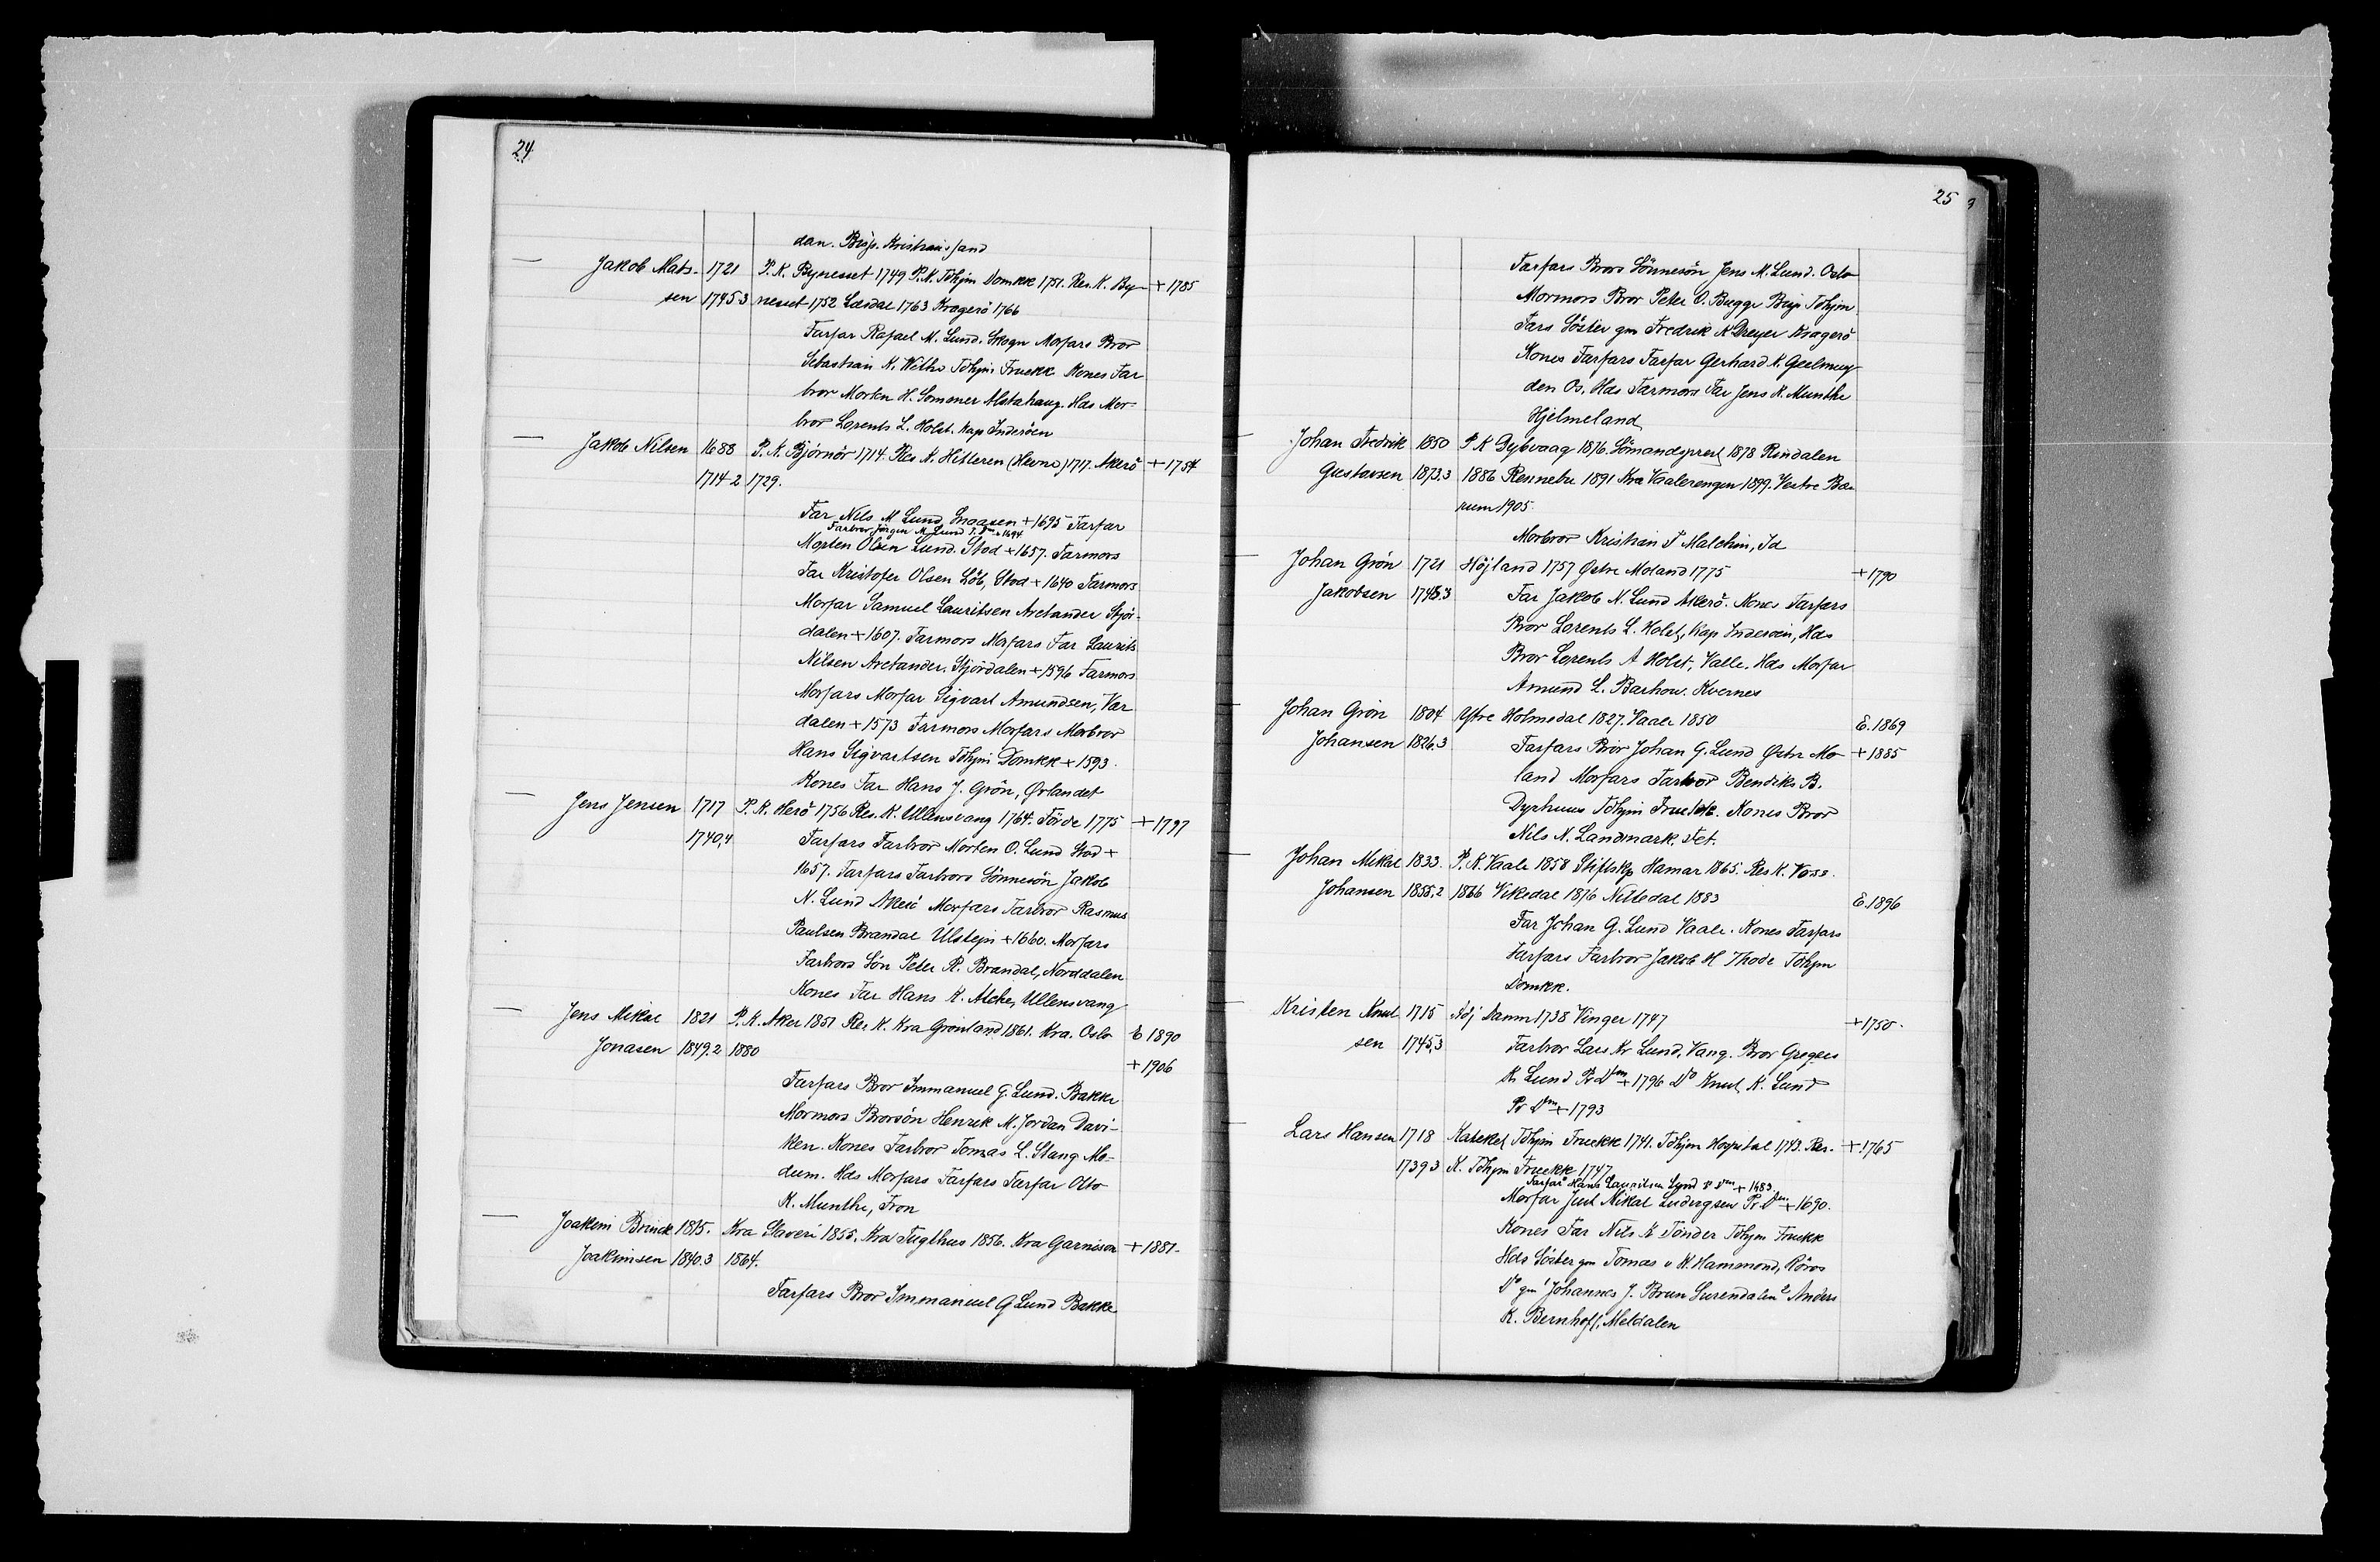 24
dan. Bisp. Kristiansand
— Jakob Mats- 1721 P. K. Bynesset 1749 P. K. Tdhjm Domkk 1751. Res. K. By- + 1785
sen 1745.3 nesset 1752 Lærdal 1763 Kragerö 1766
Farfar Rafael M. Lund. Skogn Morfars Bror
Sebastian N. With Tdhjm Fruekk Kones Far
bror Morten H. Sommer Alstahaug. Hds Mor-
bror Lorents L. Holst. Kap Inderöen
— Jakob Nilsen 1688 P. K. Björnör 1714. Res K. Hitteren (Hevne) 1717. Akerö + 1754
1714-2 1729.
Far Nils M Lund Snaasen + 1695 Farfar
Farbror Jörgen M. Lund + 1694
Morten Olsen Lund. Stod + 1657. Farmors
Far Kristofer Olsen Löb, Stod + 1640 Farmors
Morfar Samuel Lauritsen Arctander Stjör-
dalen + 1607. Farmors Morfars Far Laurits
Nilsen Arctander. Stjördalen + 1596 Farmors
Morfars Morfar Sigvart Amundsen, Vær
dalen + 1573 Farmors Morfars Morbror
Hans Sigvartsen Tdhjm Domkk + 1593.
Kones Far Hans J. Grön, Ørlandet
— Jens Jensen 1717 P. K. Herö 1756 Res. K. Ullensvang 1764. Förde 1775 + 1797
1740,4 Farfars Farbror Morten O. Lund Stod +
1657. Farfars Farbrors Sönnesön Jakob
N. Lund Akerö Morfars Farbror Rasmus
Paulsen Brandal Ulstejn + 1660. Morfars
Farbrors Sön Peter R. Brandal, Norddalen
Kones Far Hans K. Atche, Ullensvang
— Jens Mikal 1821 P. K. Aker 1851 Res K. Kra Grönland 1861. Kra. Oslo E 1890
Jonasen 1849.2 1880 + 1906
Farfars Bror Immanuel G. Lund. Bakke
Mormors Brorsön Henrik M. Jordan Davi-
ken. Kones Farbror Tomas L. Stang Mo-
dum. Hds Morfars Farfars Farfar Otto
K. Munthe, Fron
— Joakim Brinck 1815. Kra Slaveri 1855. Kra Tugthus 1856. Kra Garnison + 1881.
Joakimsen 1840.3 1864.
Farfars Bror Immanuel G Lund Bakke
25
Farfars Brors Sönnesön Jens M. Lund. Oslo
Mormors Bror Peter O. Bugge Bisp Tdhjm
Fars Söster gm Fredrik K Dreyer Kragerö
Kones Farfars Farfar Gerhard K. Geelmuy
den Os, Hds Farmors Far Jens K. Munthe
Hjelmeland
— Johan Fredrik 1850 P K Dybvaag 1876. Sömandsprest 1878 Rindalen
Gustavsen 1873.3 1886 Rennebu 1891 Kra Vaalerengen 1899. Vestre Bæ-
rum 1905.
Morbror Kristian F Malchin, Id
— Johan Grön 1721 Höjland 1757 Østre Moland 1775 + 1790
Jakobsen 1745.3 Far Jakob N. Lund Akerö. Kones Farfars
Bror Lorents L. Holst, Kap Inderöen, Hds
Bror Lorents A Holst, Valle. Hds Morfar
Amund L. Barhow. Kvernes
Johan Grön 1804 Ytre Holmedal 1827. Vaale 1850 E. 1869
Johansen 1826.3 Farfars Bror Johan G. Lund Østre Mo- + 1885
land Morfars Farbror Bendiks B.
Dyrhuus Tdhjm Fruekk. Kones Bror
Nils N. Landmark. Fet.
— Johan Mikal 1833. P. K. Vaale 1858 Stiftskp Hamar 1865. Res K. Voss.
Johansen 1855,2 1866 Vikedal 1876 Nittedal 1883 E. 1896
Far Johan G. Lund Vaale. Kones Farfars
Farfars Farbror Jakob H Thode Tdhjm
Domkk.
— Kristen Knut 1715 Adj Danm 1738 Vinger 1747 + 1750.
sen 1745,3 Farbror Lars Kr Lund, Vang. Bror Gregers
K Lund Pr Dm + 1796 Do Knut K. Lund
Pr Dm + 1793
— Lars Hansen 1718 Kateket Tdhjm Fruekk 1741. Tdhjm Hospital 1743. Res. + 1765
1739 3 K. Tdhjm Fruekk 1747
Farfar Hans Lauritsen Lund Pr Dm + 1683
Morfar Juul Mikal Ludvigsen Pr Dm + 1690.
Kones Far Nils K Tönder Tdhjm Fruekk
Hds Söster gm Tomas v K. Hammond, Röros
Do gm 1 Johannes J. Brun Surendalen 2 Anders
K. Bernhoft, Meldalen